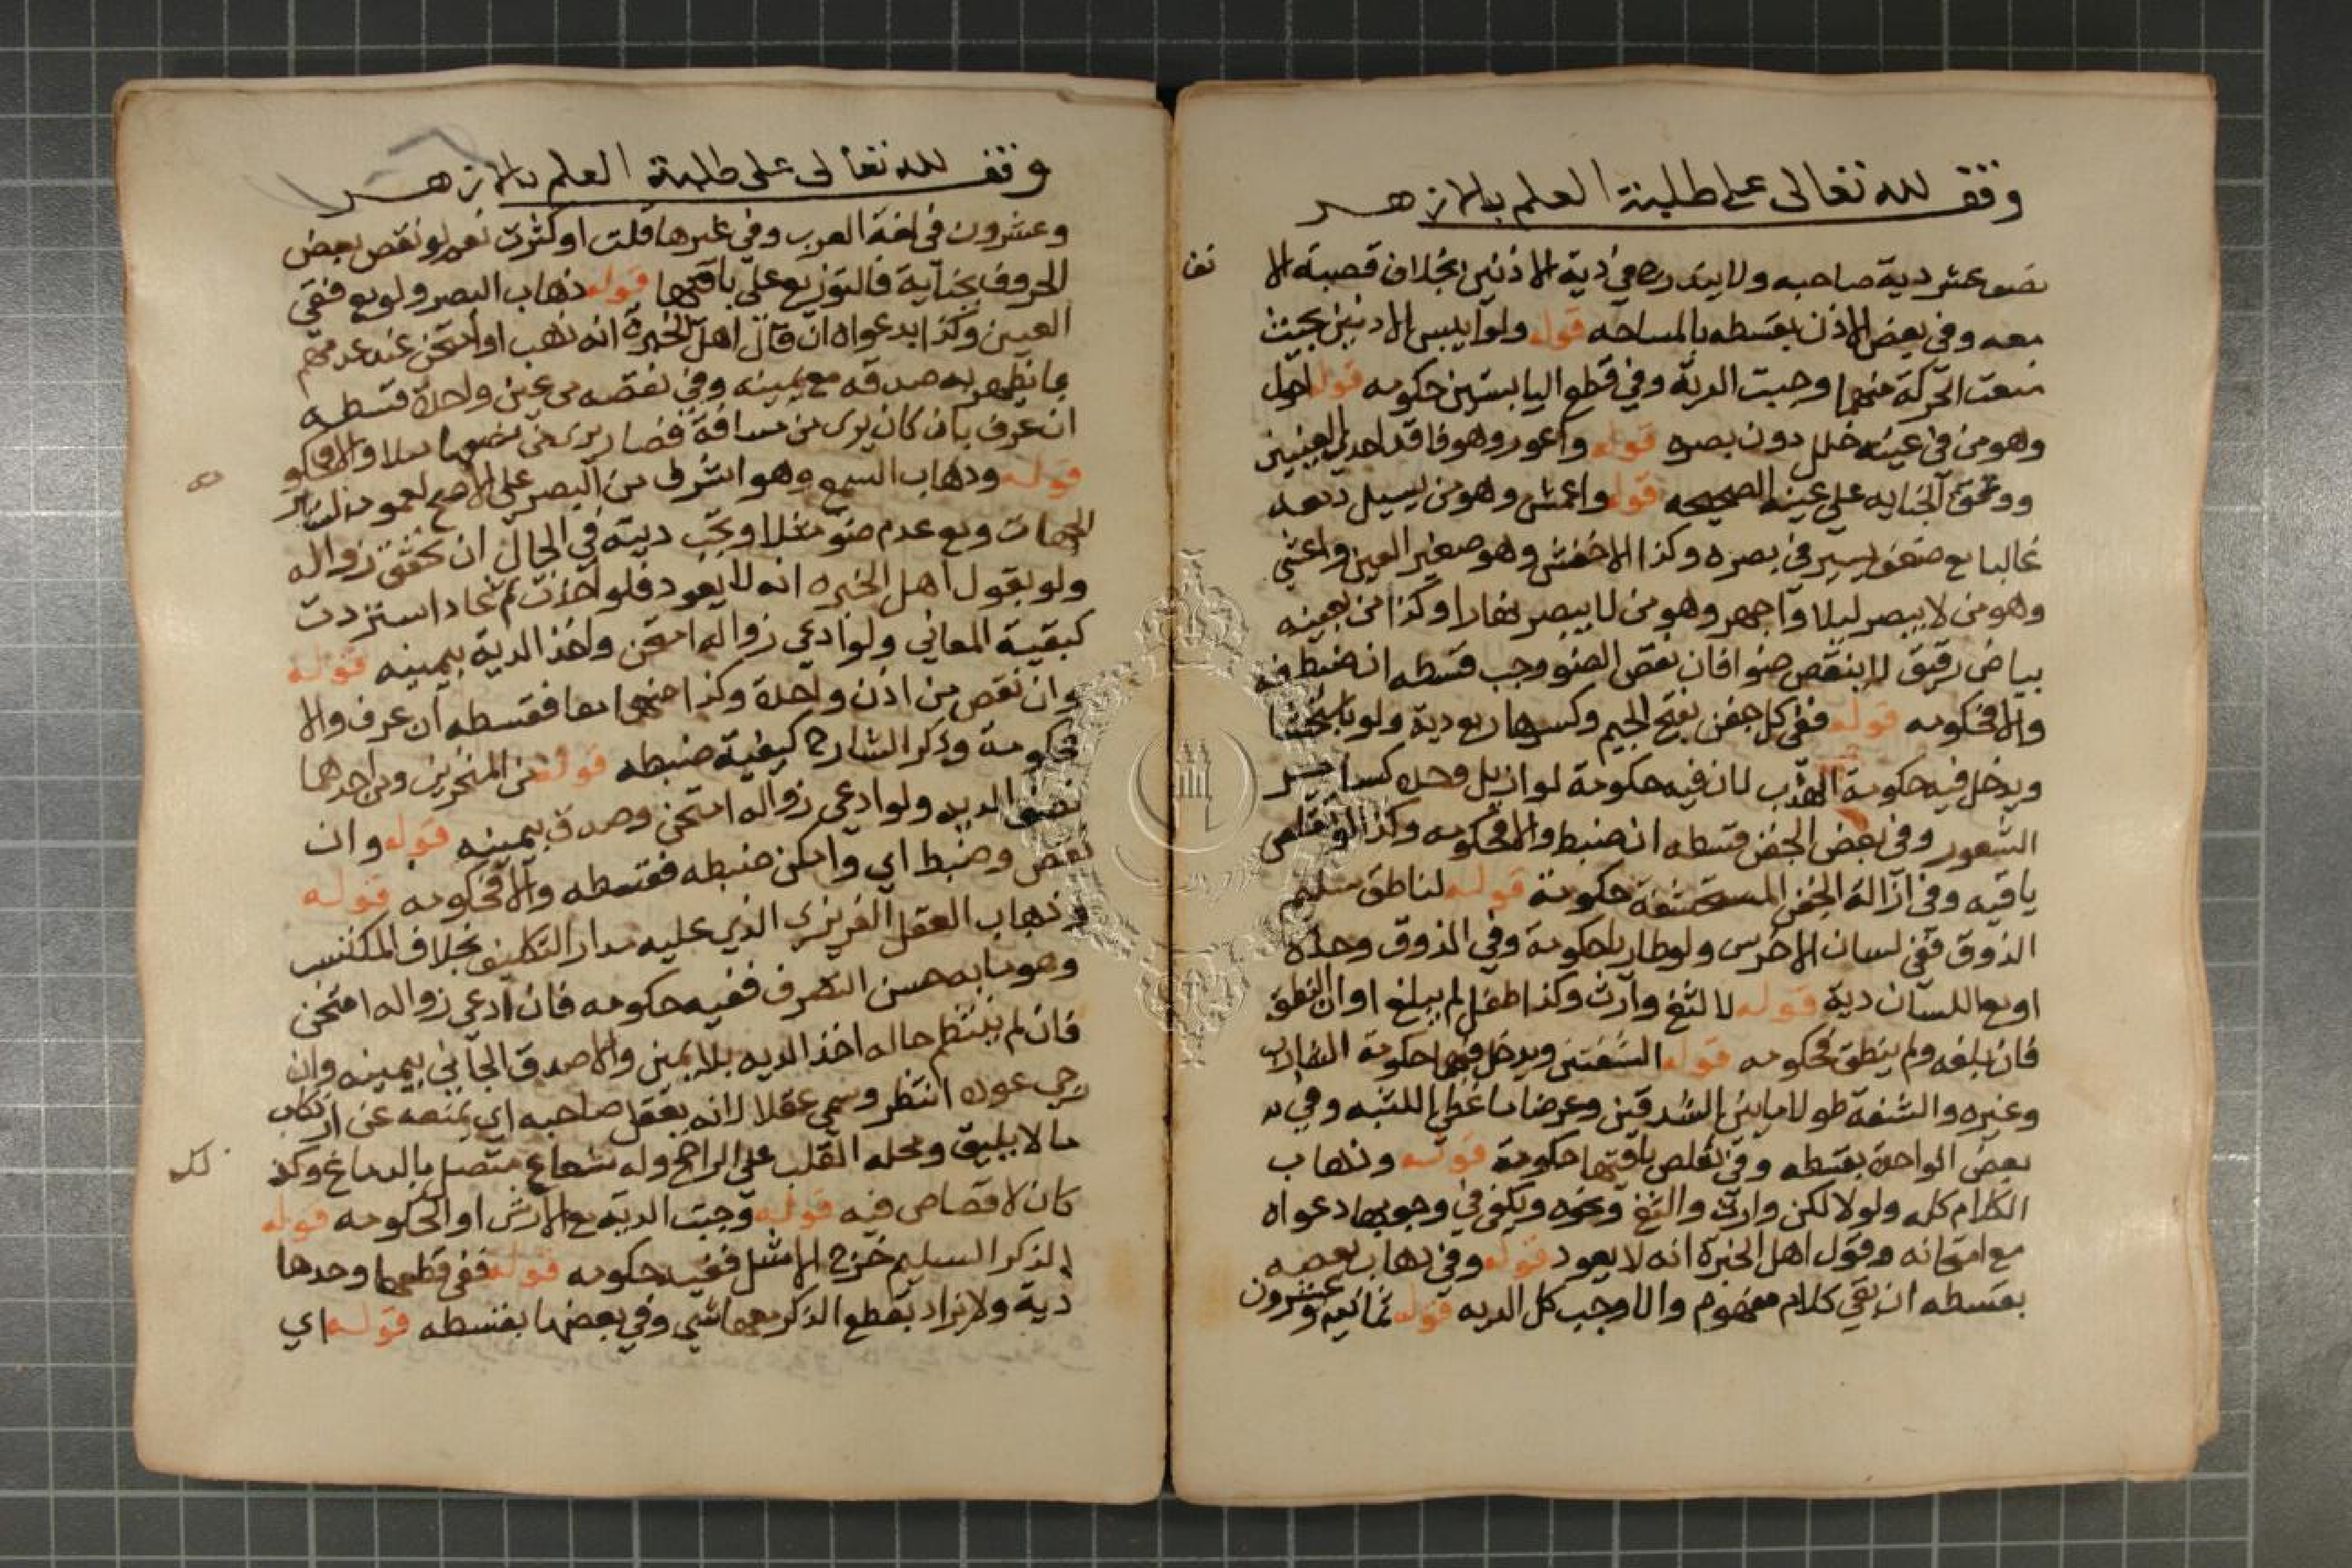 وقف لله تعالى على طلبة العلم بالازهر
نصف عشر دية صاحبه ولا يندرج في دية الاذنين بخلاف قصبة الا
نف
معه وفي بعض الاذن بقسطه بالمساحه قوله ولو ايبس الاذنين بحيث
منعت الحركة منهما وجبت الدية وفي قطع اليابستين حكومه قوله احول
وهو من في عينه خلل دون بصره قوله واعور وهو فاقد احدي العينين
ووقع الجنايه على عينه الصحيحه قوله واعمش وهو من يسيل دمعه
غالبا مع ضعف يسير في بصره وكذا الاخفش وهو صغير العين واعشي
وهو من لا يبصر ليلا واجهر وهو من لا يبصر نهارا وكذا من بعينه
بياض رقيق لا ينقص ضوا فان نقص الضو وجب قسطه ان ضبط فيه
والا فحكومه قوله ففي كل جفن بفتح الجيم وكسرها ربع دية ولو باستحشا
ويدخل فيه حكومة الهدب لان فيه حكومة لو ازيل وحده كساير
الشعور وفي بعض الجفن قسطه ان ضبط والا فحكومه وكذا لو تقلص
باقيه وفي ازالة الجفن المستحشفة حكومة قوله لناطق سليم
الذوق ففي لسان الاخرس ولو طاريا حكومة وفي الذوق وحده
او مع اللسان دية قوله لالثغ وارت وكذا طفل لم يبلغ اوان النطق
فان بلغه ولم ينطق فحكومه قوله الشفتين ويدخل فيهما حكومة الشارب
وغيره والشفة طولا ما بين الشدقين وعرضا ما غطا اللثه وفي
بعض الواحدة بقسطه وفي تقلص باقيها حكومة قوله وذهاب
الكلام كله ولو لالكن وارت والثغ ونحوه ويكفي في وجوبها دعواه
مع امتحانه وقول اهل الخبرة انه لا يعود قوله وفي ذهاب بعضه
بقسطه ان بقي كلام مفهوم والا وجب كل الديه قوله ثمانية وعشرون
وقف لله تعالى على طلبة العلم بالازهر
وعشرون في لغة العرب وفي غيرها قلت او كثرت نعم لو نقص بعض
الحروف بجناية فالتوزيع على باقيها قوله ذهاب البصر ولو مع فقي
العين وكذا بدعواه ان قال اهل الخبرة انه ذهب او امتحن عند عدمهم
بما يظهر به صدقه مع يمينه وفي نقصه من عين واحدة قسطه
ان عرف بان كان يرى من مسافة فصار يرى من نصفها مثلا والا فحكو
قوله وذهاب السمع وهو اشرف من البصر على الاصح لعمومه لساير
الجهات ومع عدم ضو مثلا وتجب ديته في الحال ان تحقق زواله
ولو بقول اهل الخبره انه لا يعود فلو اخذت ثم عاد استردت
كبقية المعاني ولو ادعي زواله امتحن واخذ الدية بيمينه قوله
وان نقص من اذن واحدة وكذا منهما معا فقسطه ان عرف والا
فحكومة وذكر الشارح كيفية ضبطه قوله من المنخرين ومن احدهما
نصف الديه ولو ادعي زواله امتحن وصدق بيمينه قوله وان
نقص وضبط اي وامكن ضبطه فقسطه والا فحكومه قوله
وذهاب العقل الغريزي الذي عليه مدار التكليف بخلاف المكتسب
وهو ما به حسن التصرف ففيه حكومه فان ادعي زواله امتحن
فان لم ينتظم حاله اخذ الديه بلا يمين والا صدق الجاني بيمينه وان
رجي عوده انتظر وسمي عقلا لانه يعقل صاحبه اي يمنعه عن ارتكاب
ما لا يليق ومحله القلب على الراجح وله شعاع متصل بالدماغ وكذ
كان لا قصاص فيه قوله وجبت الدية مع الارش او الحكومه قوله
الذكر السليم خرج الاشل ففيه حكومه قوله ففي قطعها وحدها
دية ولا يزاد بقطع الذكر معها شي وفي بعضها بقسطه قوله اي